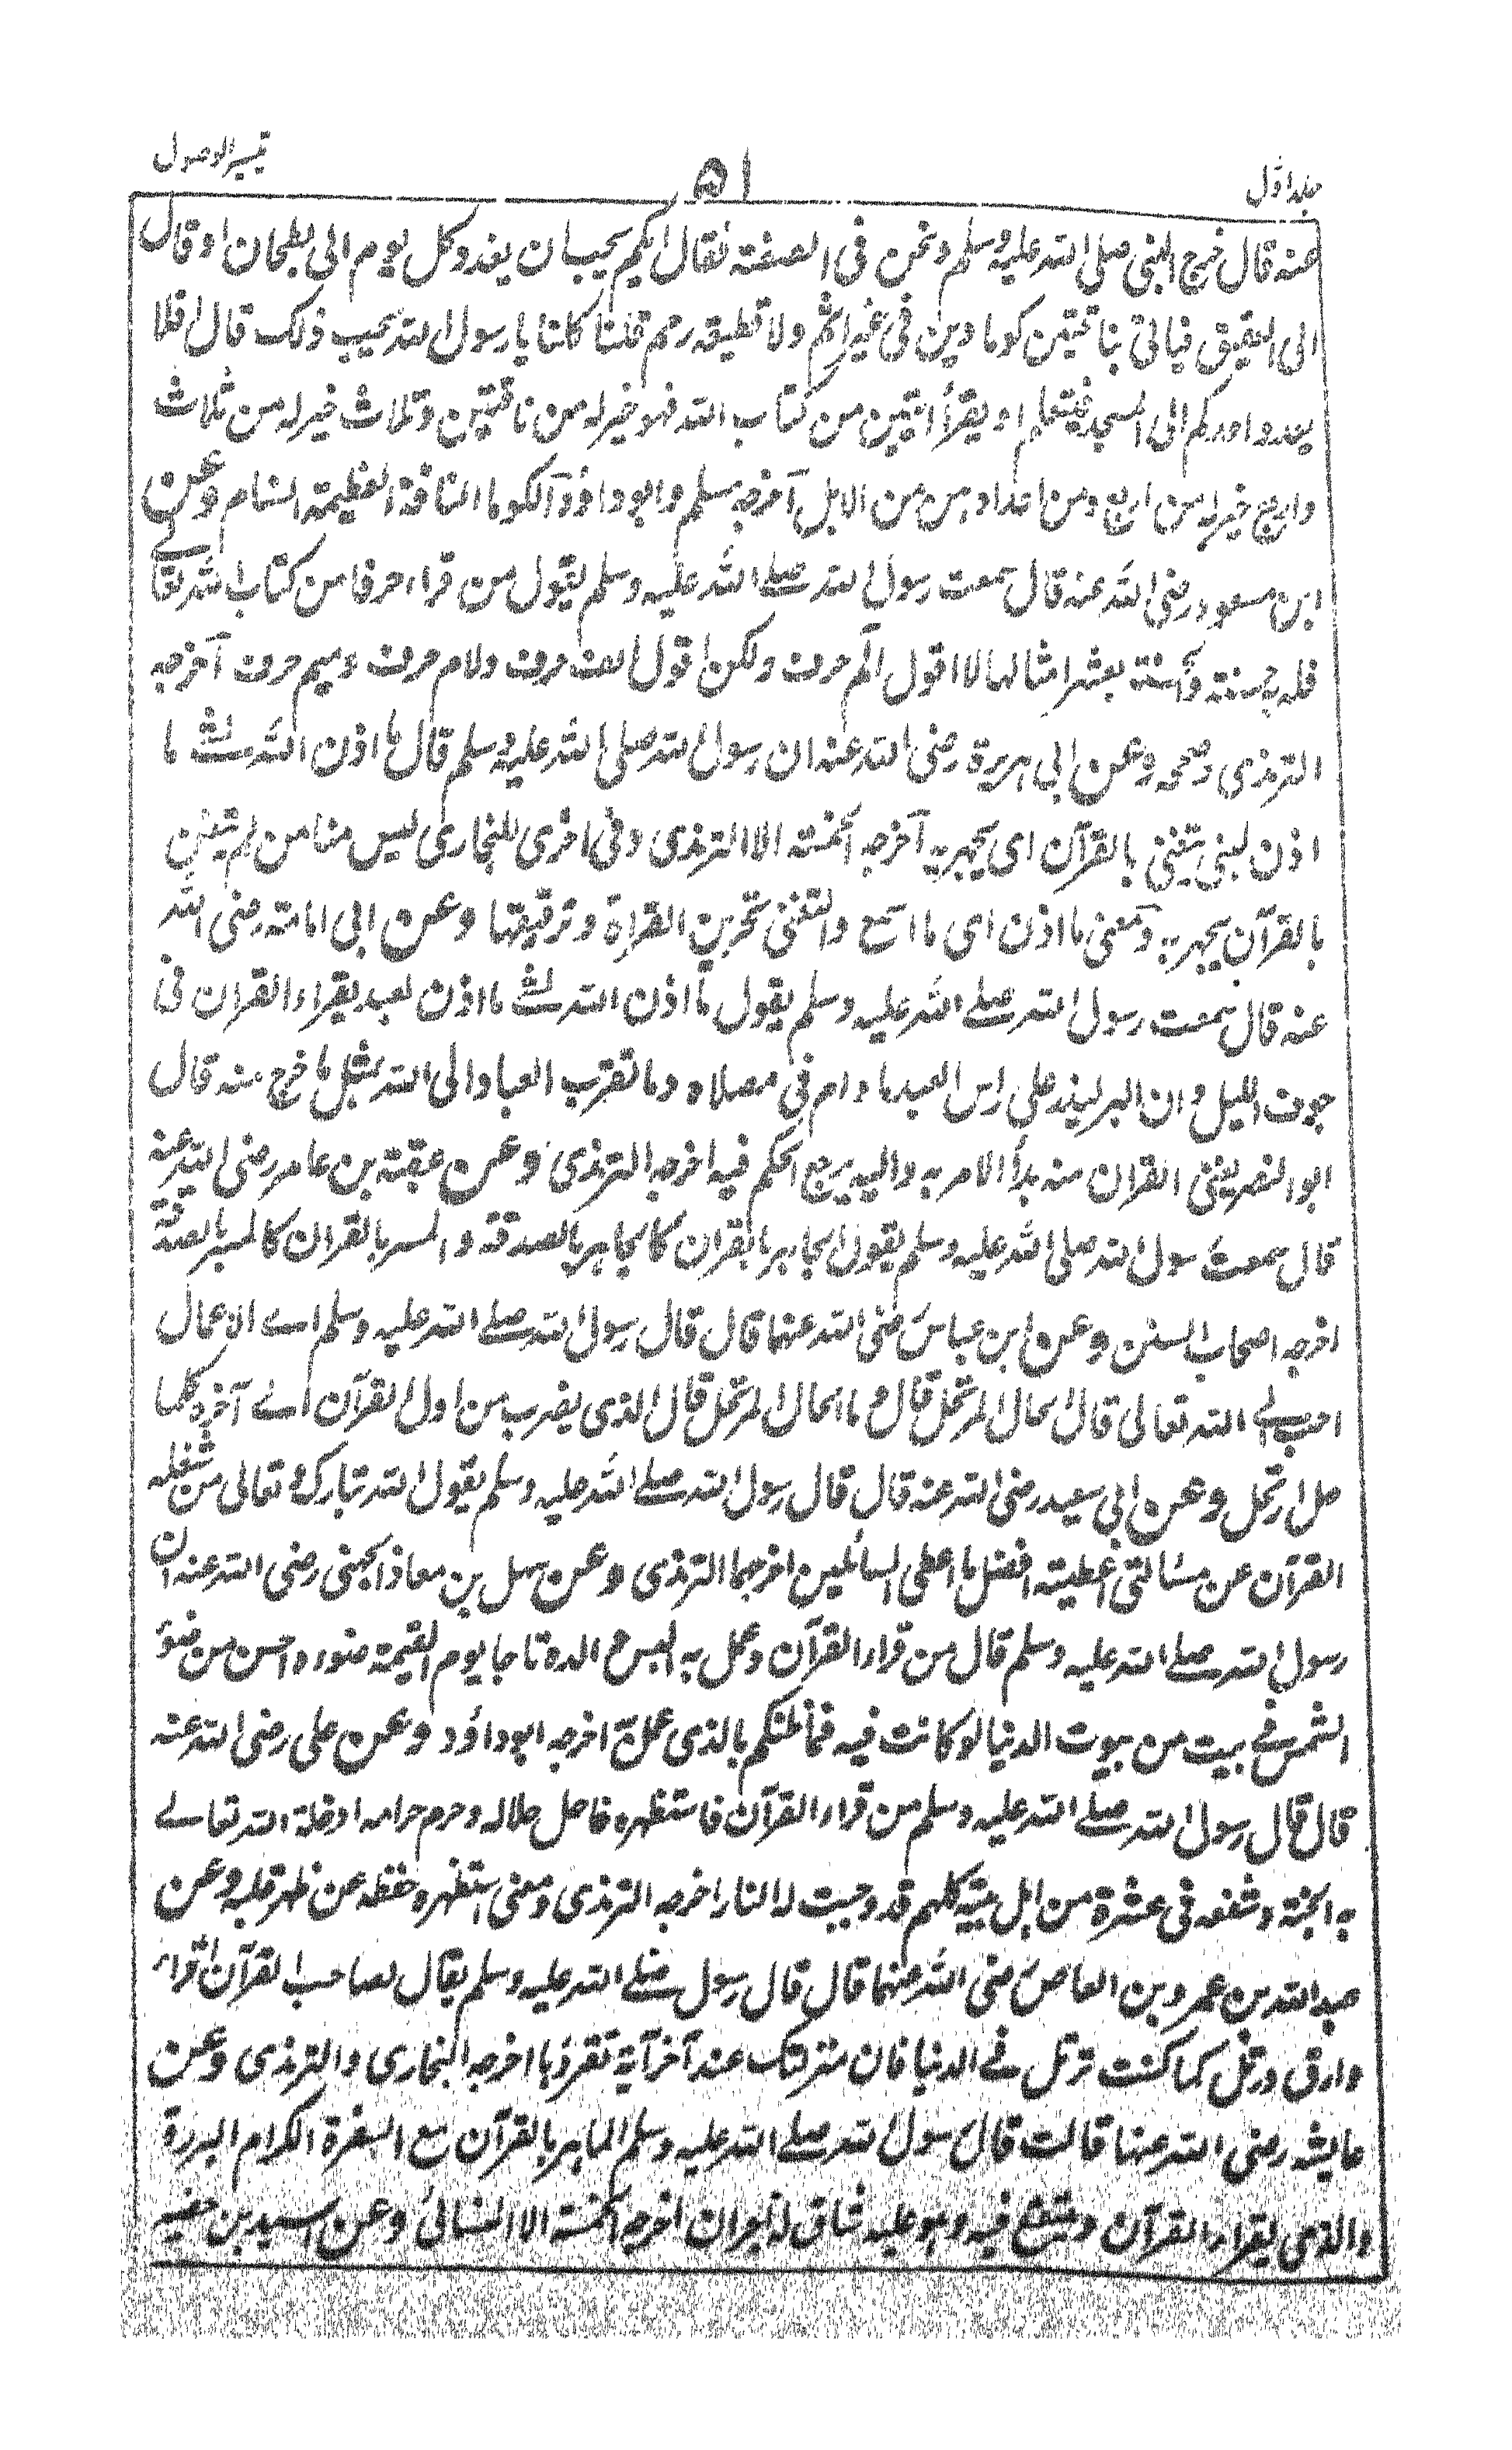 تيسير الوصول
٥١
جلد اول
عنه قال خرج النبى صلى الله عليه وسلم ونحن فى الصفة فقال ايكم يحب ان يغدو كل يوم الى بطحان او قال
الى العقيق فياتى بناقتين كوماوين فى غير اثم ولا قطيعة رحم قلنا كلنا يا رسول الله يحب ذلك قال افلا
يغدو احدكم الى المسجد فيتعلم او يقرأ ايتين من كتاب الله فهو خير له من ناقتين وثلاث خير له من ثلاث
واربع خير له من اربع ومن اعدادهن من الابل آخرجه مسلم وابو داؤد آلكوما الناقة العظيمة السنام وعن
ابن مسعود رضى الله عنه قال سمعت رسول الله صلے الله عليه وسلم يقول من قراء حرفا من كتاب الله تعالے
فله به حسنة والحسنة بعشر امثالها لا اقول الٓم حرف ولكن اقول الف حرف ولام حرف وميم حرف آخرجه
الترمذى وصححه وعن ابى هريرة رضى الله عنه ان رسول الله صلى الله عليه وسلم قال ما اذن الله لشئ ما
اذن لنبى يتغنى بالقرآن اى يجهر به آخرجه الخمسة الا الترمذى وفى اخرى للبخارى ليس منا من لم يتغن
بالقرآن يجهر به ومعنى ما اذن اى ما استمع والتغنى تحزين القراءة وترقيقها وعن ابى امامة رضى الله
عنه قال سمعت رسول الله صلے الله عليه وسلم يقول ما اذن الله لشئ ما اذن لعبد يقراء القران فى
جوف الليل وان البر ليذر على راس العبد ما دام فى مصلاه وما تقرب العباد الى الله بمثل ما خرج منه قال
ابو النضر يعنى القران منه بدأ الامر به واليه يرجع الحكم فيه اخرجه الترمذى وعن عقبة بن عامر رضى الله عنه
قال سمعت رسول الله صلى الله عليه وسلم يقول الجاهر بالقران كالجاهر بالصدقة والمسر بالقران كالمسر بالصدقة
اخرجه اصحاب السنن وعن ابن عباس رضى الله عنهما قال قال رسول الله صلے الله عليه وسلم اے الاعمال
احب الے الله تعالى قال الحال المرتحل قال وما الحال المرتحل قال الذى يضرب من اول القرآن اے آخره كلما
حل ارتحل وعن ابى سعيد رضى الله عنه قال قال رسول الله صلے الله عليه وسلم يقول الله تبارك وتعالى من شغله
القرآن عن مسالتى اعطيته افضل ما اعطى السائلين اخرجهما الترمذى وعن سهل بن معاذ الجهنى رضى الله عنه ان
رسول الله صلے الله عليه وسلم قال من قراء القرآن وعمل به البس والده تاجا يوم القيمة ضوره احسن من ضوء
الشمس فے بيت من بيوت الدنيا لو كانت فيه فما ظنكم بالذى عمل به اخرجه ابو داؤد وعن على رضى الله عنه
قال قال رسول الله صلے الله عليه وسلم من قراء القرآن فاستظهره فاحل حلاله وحرم حرامه ادخله الله تعالے
به الجنة وشفعه فى عشرة من اهل بيته كلهم قد وجبت له النار اخرجه الترمذى ومعنى استظهره حفظه عن ظهر قلبه وعن
عبد الله بن عمرو بن العاص رضى الله عنهما قال قال رسول صلے الله عليه وسلم يقال لصاحب القرآن اقراء
وارق ورتل كما كنت ترتل فے الدنيا فان منزلتك عند آخر آية تقرؤها اخرجه البخارى والترمذى وعن
عايشه رضى الله عنها قالت قال رسول الله صلے الله عليه وسلم الماهر بالقرآن مع السفرة الكرام البررة
والذى يقراء القرآن ويتتعتع فيه وهو عليه شاق له اجران اخرجه الخمسة الا النسائى وعن اسيد بن حضير